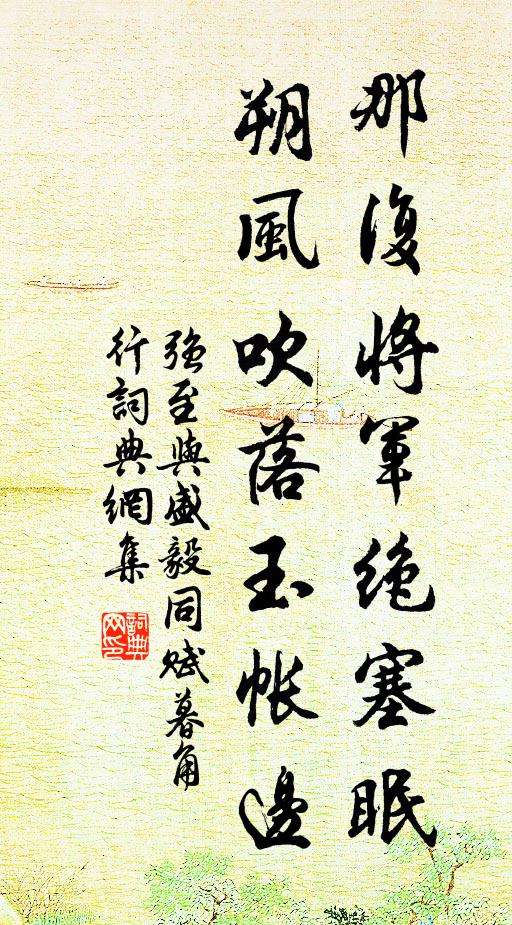 那復將軍絶塞眠
朔風吹落玉帳邊
強至與盛毅同賦暮角
行詞典網集
詞典
网印